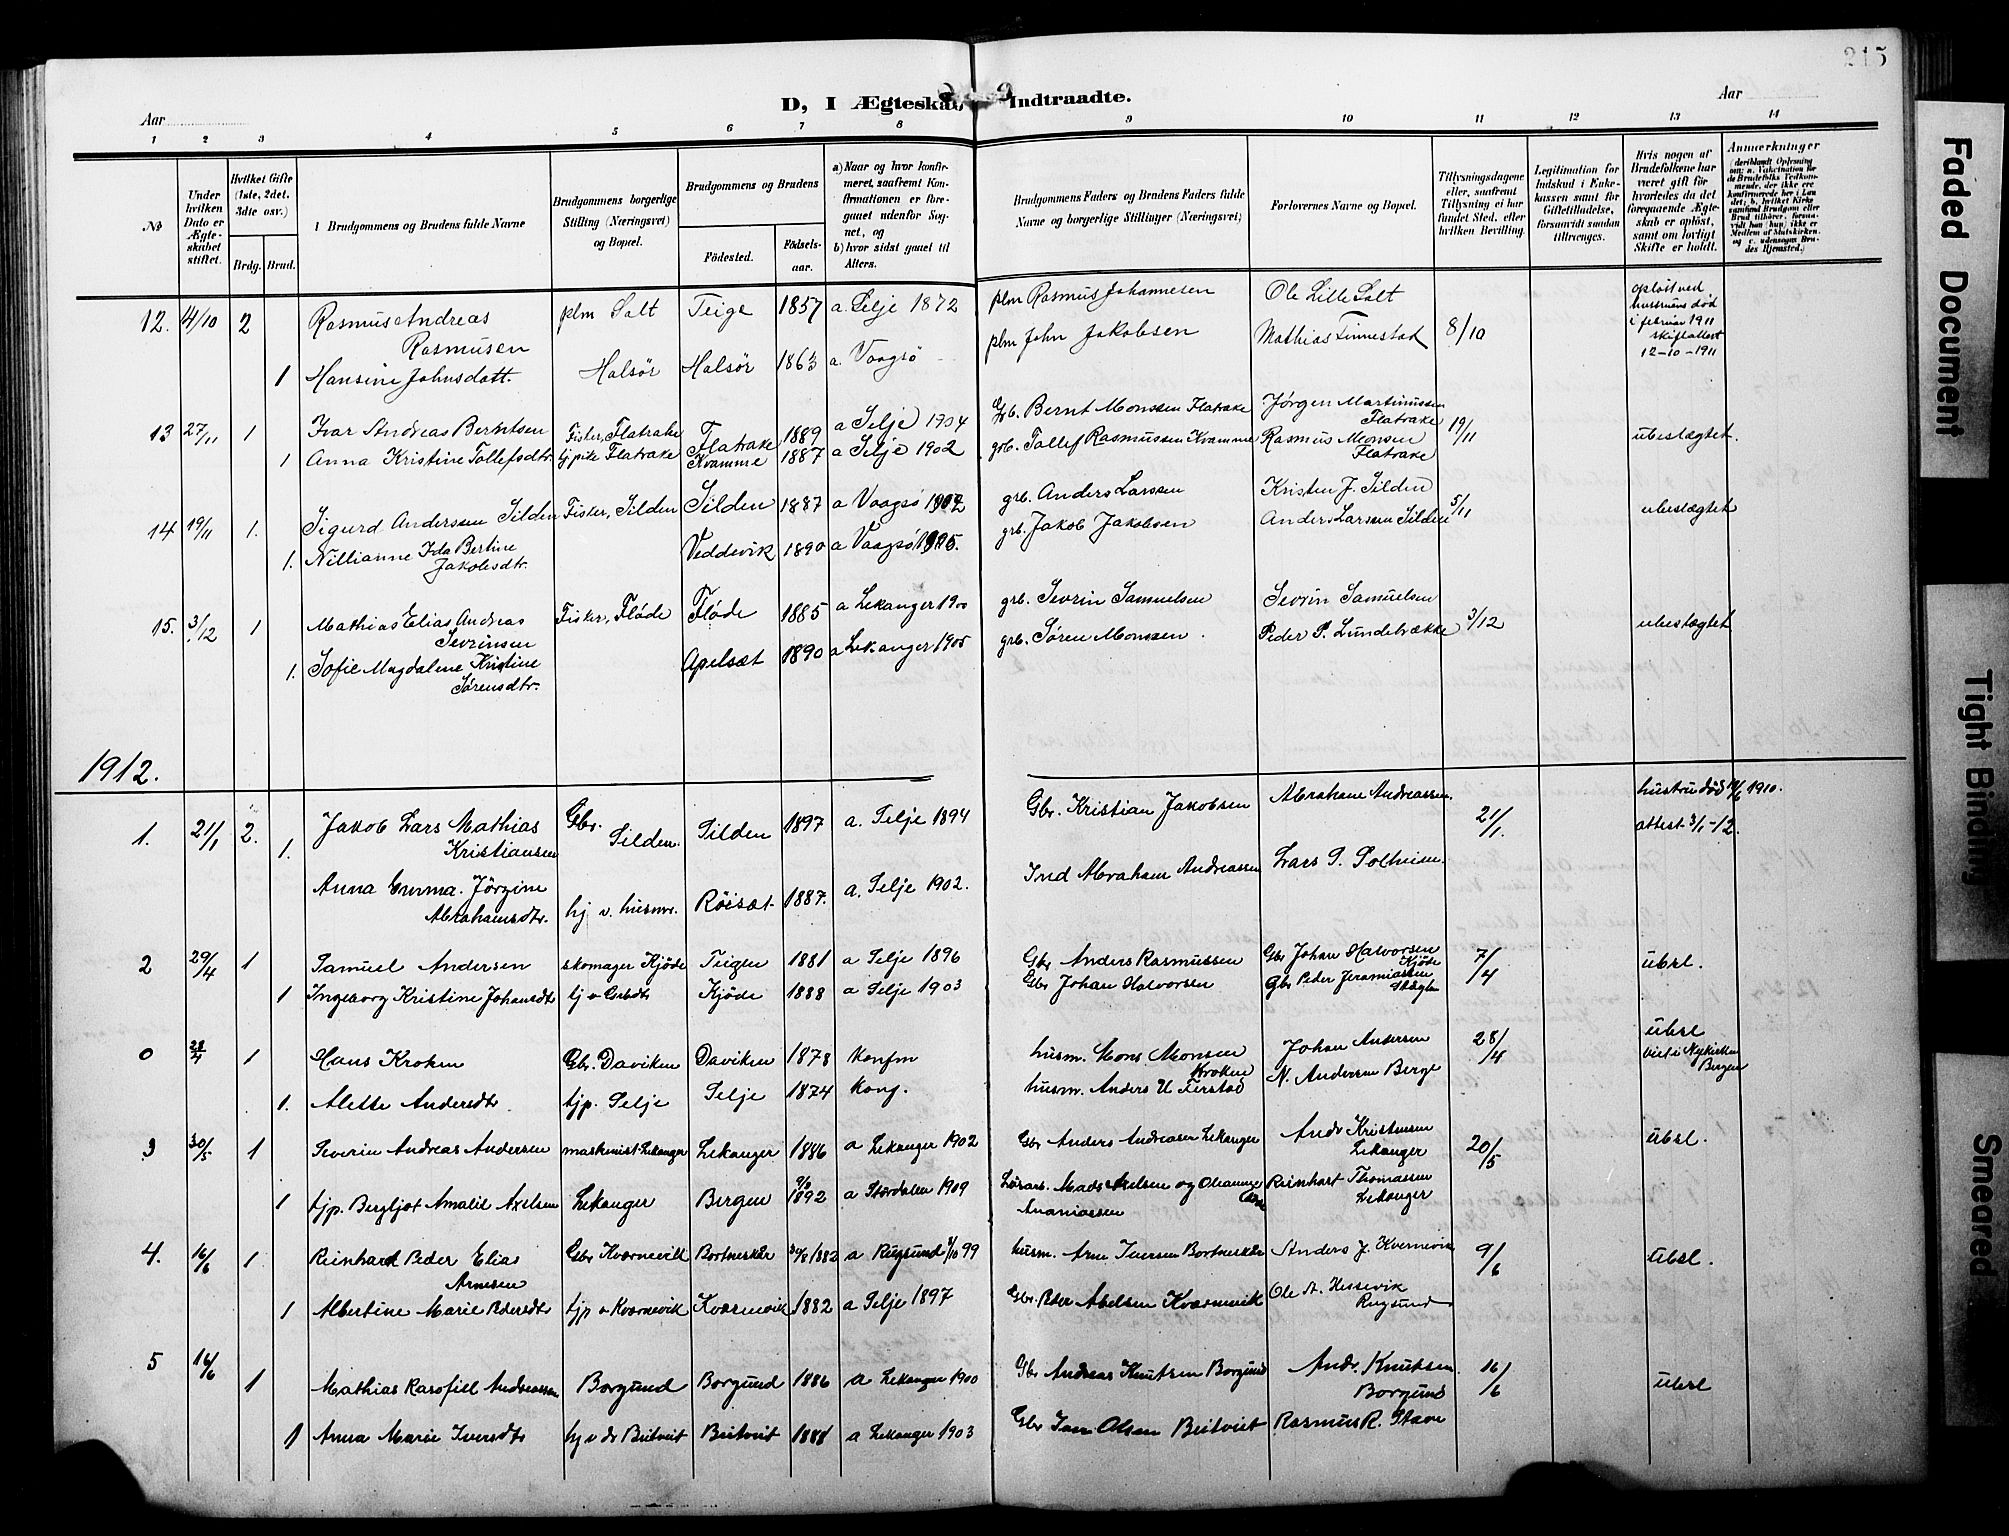 215
D, I Ægteskab Indtraadte.
Aar
Aar
1 2 3 4 5 6 7 8 9 10 11 12 13 14
No
Under hvilken Dato er Ægteskabet stiftet.
Hvilket Gifte (1ste, 2det, 3die osv.)
Brdg. Brud.
Brudgommens og Brudens fulde Navne
Brudgommens borgerlige Stilling (Næringsvei) og Bopæl.
Brudgommens og Brudens
Fødested.
Fødselsaar.
a) Naar og hvor konfirmeret, saafremt Konfirmationen er foregaaet udenfor Sognet, og
b) hvor sidst gaaet til Alters.
Brudgommens Faders og Brudens Faders fulde Navne og borgerlige Stillinger (Næringsvei)
Forlovernes Navne og Bopæl.
Tillysningsdagene eller, saafremt Tillysning ei har fundet Sted, efter hvilken Bevilling.
Legitimation for Indskud i Enkekassen samt for Giftetilladelse, forsaavidt saadan tiltrænges.
Hvis nogen af Brudefolkene har været gift før hvorledes da det foregaaende Ægteskab er opløst, samt om lovligt Skifte er holdt.
Anmærkninger
12. 4/10 2 Rasmus Andreas Rasmusen plm Salt Teige 1857 a. Selje 1872 plm Rasmus Johannesen Ole Lille Salt 8/10 opløst ved hustruens død i februar 1911 skifteattest 12-10-1911
1 Hansine Johnsdatt. Halsør Halsør 1863 a. Vaagsø plm John Jakobsen Mathias Finnestad
13 27/11 1 Ivar Andreas Berntsen Fisker, Flatrake Flatrake 1889 a Selje 1904 Gb. Bernt Monssen Flatrake Jørgen Martinussen Flatrake 19/11 ubeslægtet.
1 Anna Kristine Tollefsdtr tj pike Flatrake Kvamme 1887 a Selje 1902 grb. Tollef Rasmussen Kvamme Rasmus Monsen Flatrake
14 19/11 1. Sigurd Anderssen Silden Fisker, Silden Silden 1887 a Vaagsø 1902 grb. Anders Larssen Kristen J. Silden 5/11 ubeslægtet
1. Nillianne Ida Bertine Jakobsdtr. Veddevik 1890 a Vaagsø 1905. grb. Jakob Jakobsen Anders Larssen Silden
15. 3/12 1 Mathias Elias Andreas Sevrinsen Fisker, Fløde Fløde 1885 a Lekanger 1900 grb. Sevrin Samuelsen Sevrin Samuelsen 3/12 ubeslægtet
1. Sofie Magdalene Kristine Sørensdtr. Apelsæt 1890 a Lekanger 1905 grb. Søren Monssen. Peder P. Lundebrække
1912.
1. 21/1 2. Jakob Lars Mathias Kristiansen Gbr. Silden. Silden 1897 a. Selje 1894 Gbr. Kristian Jakobsen Abraham Andreassen 21/1. hustru død 1910. attest 3/1-12.
1. Anna Emma. Jörgine Abrahamsdtr. hj v. husm. Röisæt 1887. a. Selje 1902. Ind Abraham Andreassen Lars S. Solheim
2 29/4 1 Samuel Andersen skomager Kjøde Teigen 1881 a Selje 1896 Gbr Anders Rasmussen Gbr Johan Halvorsen Kjøde 7/4 übsl.
1 Ingeborg Kristine Johansdtr Kjøde 1888 a Selje 1903 Gbr Johan Halvorsen Gbr Peder Jeramiassen
0 28/4 1 Hans Kroken Gbr. Daviken Daviken 1878 Konfm husm. Mons Monsen Kroken Johan Andersen 28/4 übsl viet i Nykirken Bergen
1. Alette Andersdtr tjp. Selje Selje 1874 Konf. husm. Anders U Ferstad N. Andersen Berge
3 30/5 1 Severin Andreas Andersen maskinist Lekanger Lekanger 1886 a Lekanger 1902 Gbr Anders Andreasen Lekanger Andr Kristensen Lekanger 20/5 übsl.
1 tjp. Bergljot Amalie Axelsen Lekanger Bergen 1892 a Stordalen 1909 Mads Axelsen og Ananiassen Reinhart Thomassen Lekanger
4. 16/6 1 Reinhard Peder Elias Arnesen Gbr Kvarnevik Bortneskår 1882 a Rugsund 99 husm. Arne Iversen Bortneskår Anders J. Kvernevik 9/6 übsl.
1 Albertine Marie Pedersdtr tjp v Kvarnevik Kvarnevik 1882 a Selje 1897 Gbr. Peder Abelsen Kvarnevik Ole A. Hessevik Rugsund
5 16/6 1 Mathias Rasofiel Andreassen Borgund Borgund 1886 a Lekanger 1900 Gbr Andreas Knutsen Borgund Andr. Knutsen Borgund 16/6 übsl
1 Anna Marie Iversdtr hj v dr Beitveit Beitveit 1881 a Lekanger 1903 Gbr Iver Olsen Beitveit Rasmus R. Stave
Faded Document
Tight Binding
Smeared